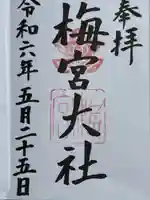 奉拝
梅宮大社
令和六年五月二十五日